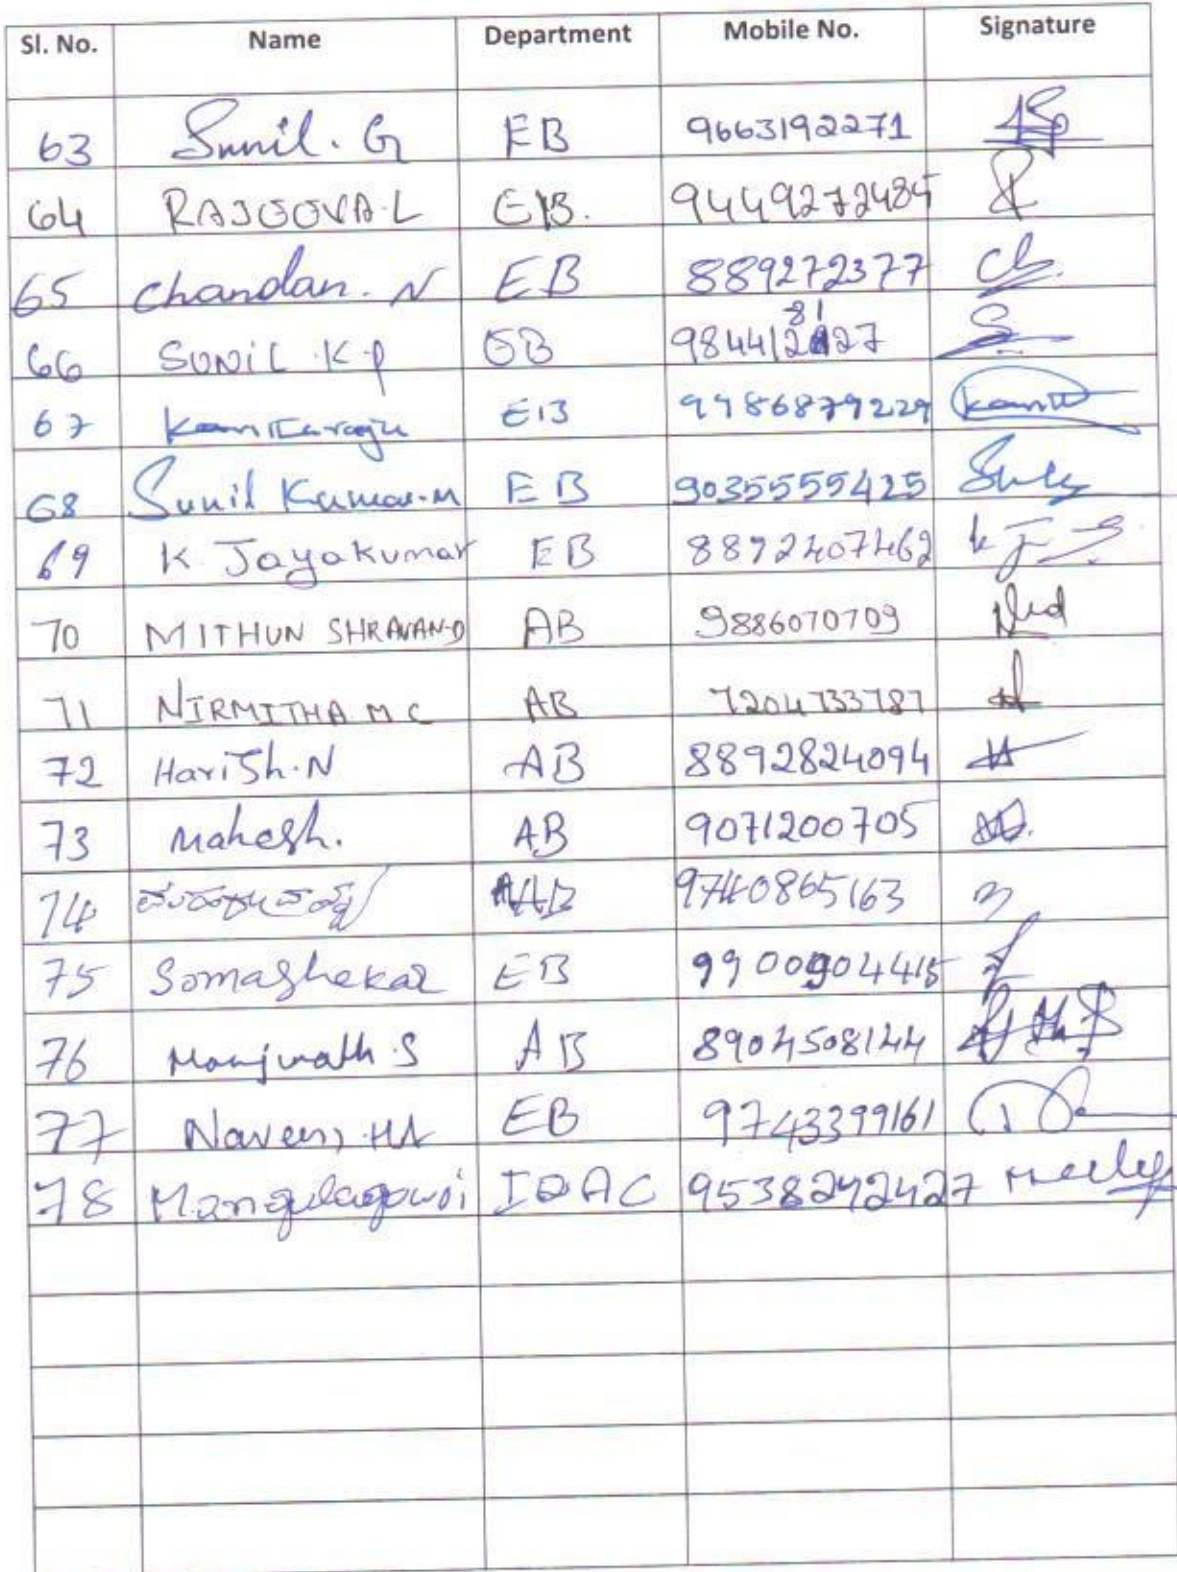 Sl. No. Name Department Mobile No. Signature
63 Sunil. G EB 9663192271
64 RAJGOVA.L EB. 9449272485
65 Chandan. N EB 889272377
66 SUNIL K.P EB
67 EB 9986879229
68 Sunil Kumar.M EB 9035555425
69 K. Jayakumar EB 8892407462
70 MITHUN SHRAVAN.D AB 9886070709
71 NIRMITHA M C AB 7204733787
72 Harish.N AB 8892824094
73 Mahesh. AB 9071200705
74 AB 9740865163
75 Somashekar EB 9900904415
76 Manjunath.S AB 8904508144
77 Naveen, HA EB 9743399161
78 Mangalagowri IQAC 9538242427